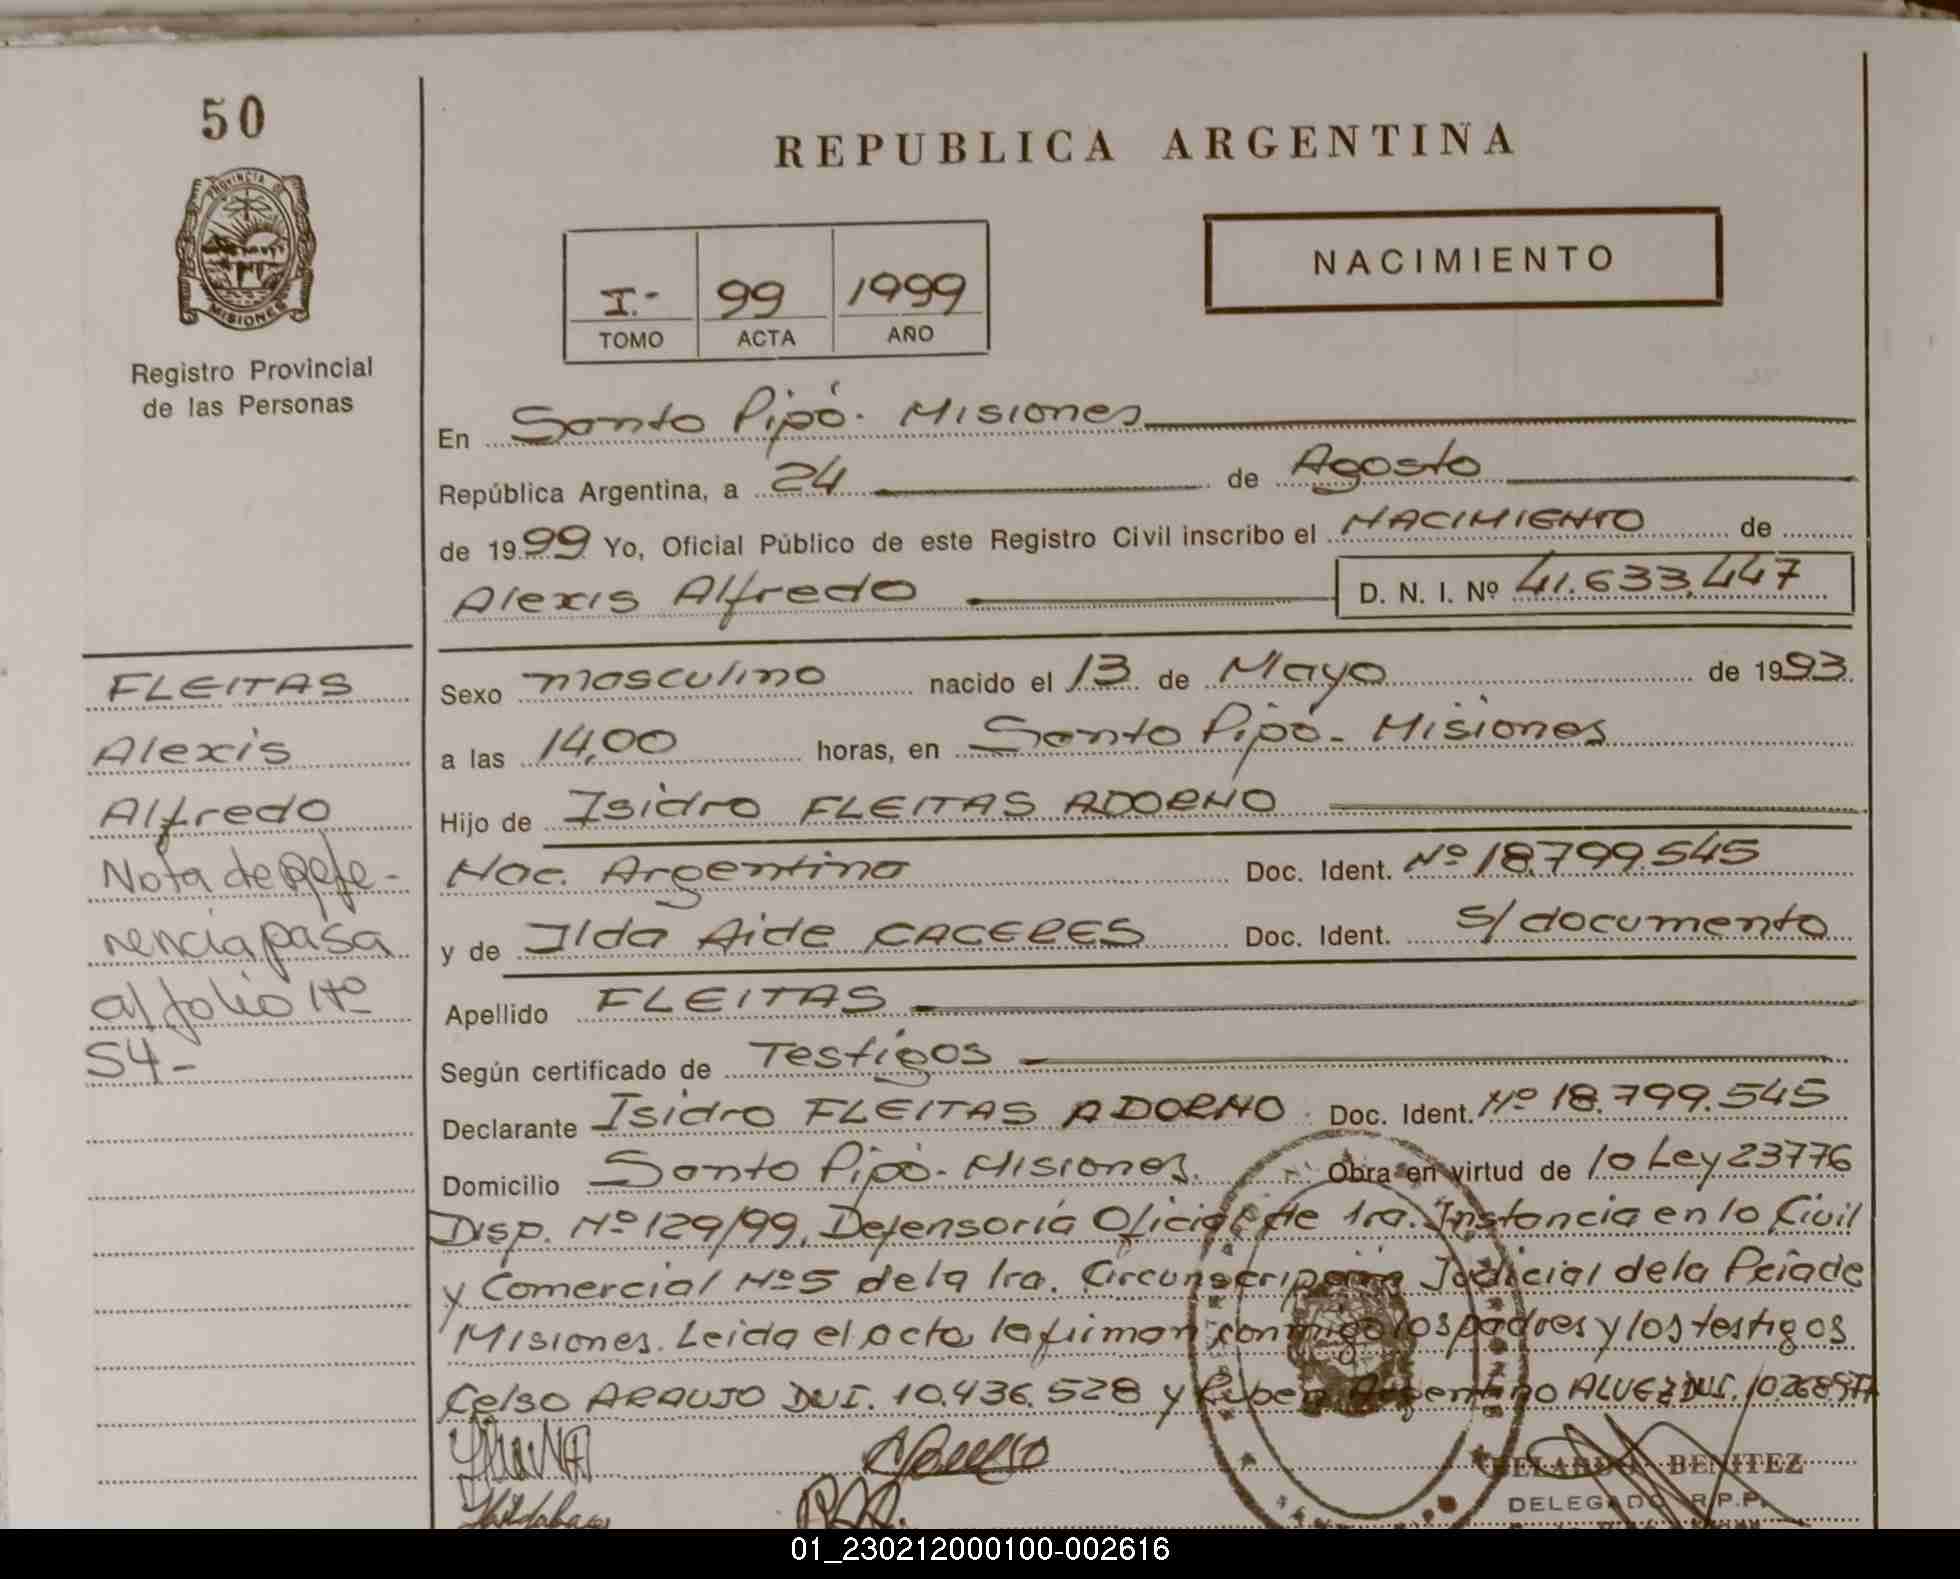 50
PROVINCIA DE
MISIONES
Registro Provincial
de las Personas
REPUBLICA ARGENTINA
I.- 99 1999
TOMO ACTA AÑO
NACIMIENTO
En Santo Pipó. Misiones
República Argentina, a 24 de Agosto
de 1999 Yo, Oficial Público de este Registro Civil inscribo el NACIMIENTO de
Alexis Alfredo D. N. I. Nº 41.633.447
FLEITAS
Alexis
Alfredo
Nota de Refe-
rencia pasa
al folio Nº
54-
Sexo masculino nacido el 13 de Mayo de 1993.
a las 14,00 horas, en Santo Pipó. Misiones
Hijo de Isidro FLEITAS ADORNO
Nac. Argentina Doc. Ident. Nº 18.799.545
y de Ilda Aide CACERES Doc. Ident. S/documento
Apellido FLEITAS
Según certificado de Testigos
Declarante Isidro FLEITAS ADORNO Doc. Ident. Nº 18.799.545
Domicilio Santo Pipó. Misiones. Obra en virtud de la Ley 23776
Disp. Nº 129/99, Defensoría Oficial de 1ra. Instancia en lo Civil
y Comercial Nº5 de la 1ra. Circunscripción Judicial de la Pciade
Misiones. Leida el acta, la firman conmigo los padres y los testigos
Celso ARAUJO DNI. 10.436.528 y Ruben Argentino ALVEZ DNI.
BENITEZ
DELEGADO R.P.P.
01_230212000100-002616